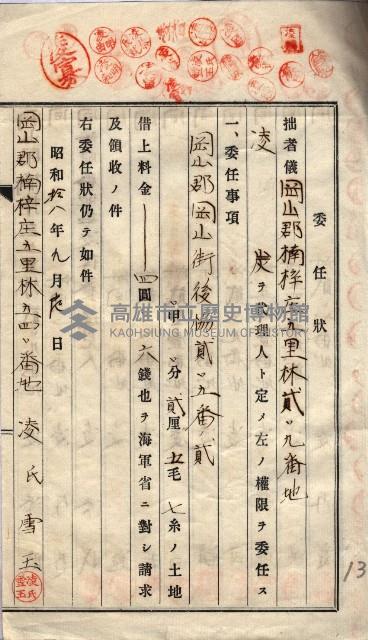 委任狀
拙者儀岡山郡楠梓庄五里林貳〃九番地
凌 ヲ代理人ト定メ左ノ權限ヲ委任ス
一、委任事項
岡山郡岡山街後協貳〃五番ノ貳
〃甲〃分貳厘五毛七糸ノ土地
借上料金 四圓〃六錢也ヲ海軍省ニ對シ請求
及領收ノ件
右委任狀仍テ如件
昭和拾八年九月 日
岡山郡楠梓庄五里林五四〃番地 凌氏雪玉
凌氏雪玉
13
高雄市立歷史博物館
KAOHSIUNG MUSEUM OF HISTORY